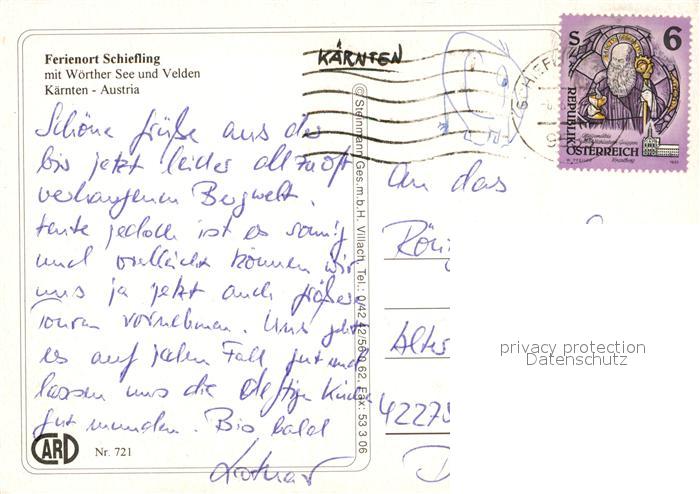 Ferienort Schiefling
mit Wörther See und Velden
Kärnten - Austria
KÄRNTEN
S 6
REPUBLIK
ÖSTERREICH
Schöne Grüße aus der
bis jetzt leider allzuoft
verhangenen Bergwelt.
Heute jedoch ist es sonnig
und vielleicht können wir
uns ja jetzt auch größere
Touren vornehmen. Uns geht
es auf jeden Fall gut und
lassen uns die deftige Küche
gut munden. Bis bald
Lothar
© Steinmann Ges.m.b.H. Villach, Tel.: 0/42 42/56 0 62, Fax: 53 3 06
An das
Alter
42275
D
privacy protection
Datenschutz
CARD
Nr. 721